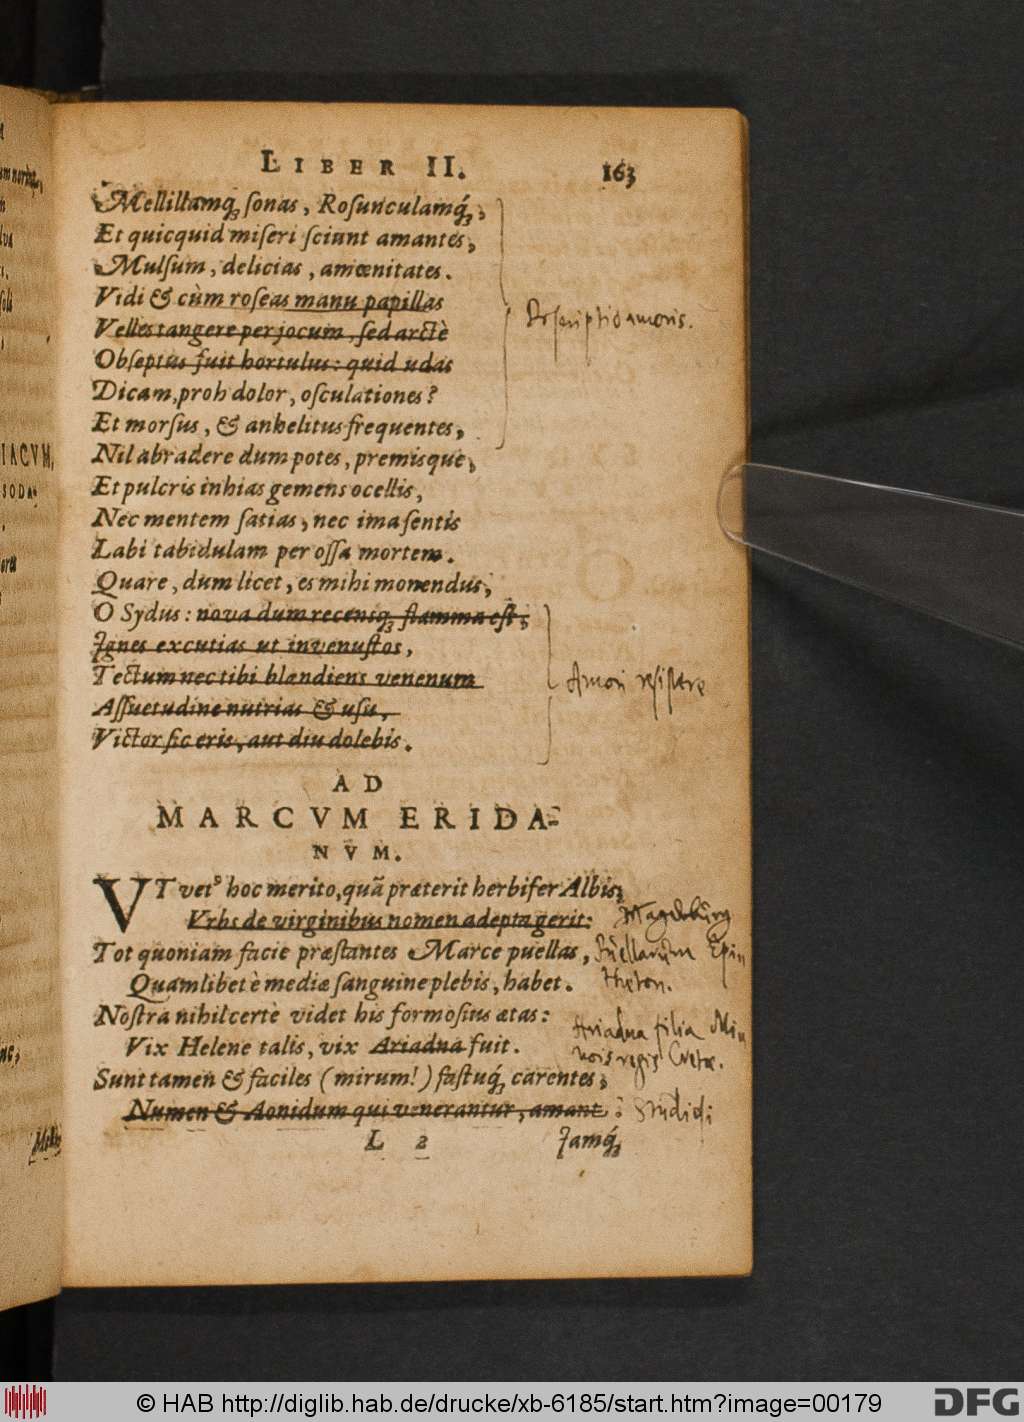 LIBER II. 163
Mellillamq́; ſonas, Roſunculamq́;,
Et quicquid miſeri ſciunt amantes,
Mulſum, delicias, amœnitates.
Vidi & cùm roſeas manu papillas
Velles tangere per jocum, ſed arctè
Obſeptus fuit hortulus: quid udas
Descriptio amoris.
Dicam, proh dolor, oſculationes?
Et morſus, & anhelitus frequentes,
Nil abradere dum potes, premisque,
Et pulcris inhias gemens ocellis,
Nec mentem ſatias, nec ima ſentis
Labi tabidulam per oſſa mortem.
Quare, dum licet, es mihi monendus,
O Sydus: nova dum recensq́; flamma eſt,
Ignes excutias ut invenuſtos,
Tectum nec tibi blandiens venenum
Amori resistere
Aſſuetudine nutrias & uſu,
Victor ſic eris, aut diu dolebis.
AD
MARCVM ERIDA-
NVM.
VT vetꝰ hoc merito, quã præterit herbifer Albis,
Vrbs de virginibus nomen adepta gerit:
Magdeburg
Tot quoniam facie præſtantes Marce puellas,
Puellarum Epi
Quamlibet è mediæ ſanguine plebis, habet.
theton.
Noſtra nihil certè videt his formoſius ætas:
Ariadna filia Mi
Vix Helene talis, vix Ariadna fuit.
nois regis Cretæ.
Sunt tamen & faciles (mirum!) faſtuq́; carentes,
Numen & Aonidum qui venerantur, amant:
Studiosi
L 2 Jamq́;